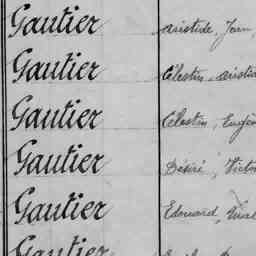 Gautier Aristide, Jean,
Gautier Célestin, Aristid
Gautier Célestin, Eugèn
Gautier Désiré, Victor
Gautier Edouard,
Gautier